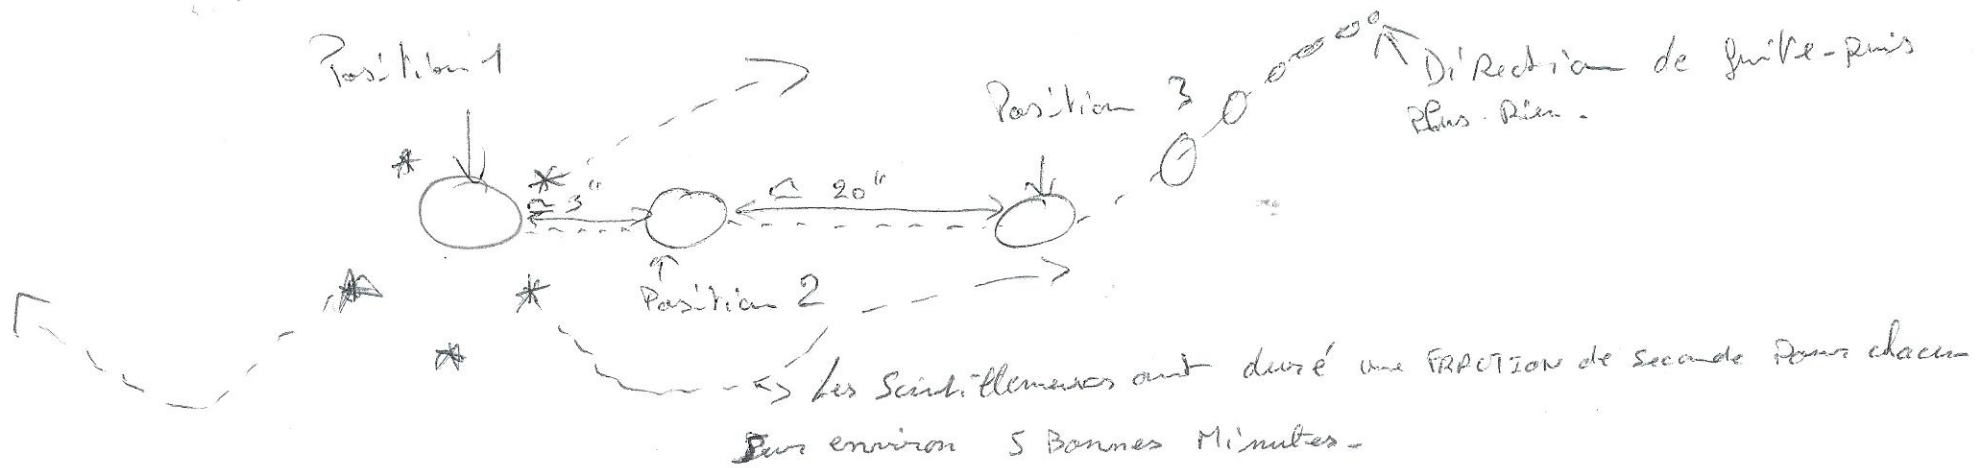 Position 1
Position 3
Direction de fuite - puis
Plus Rien.
≃ 3"
≃ 20"
Position 2
=> Les Scintillements ont duré une FRACTION de seconde Pour chacun
Sur environ 5 Bonnes Minutes -